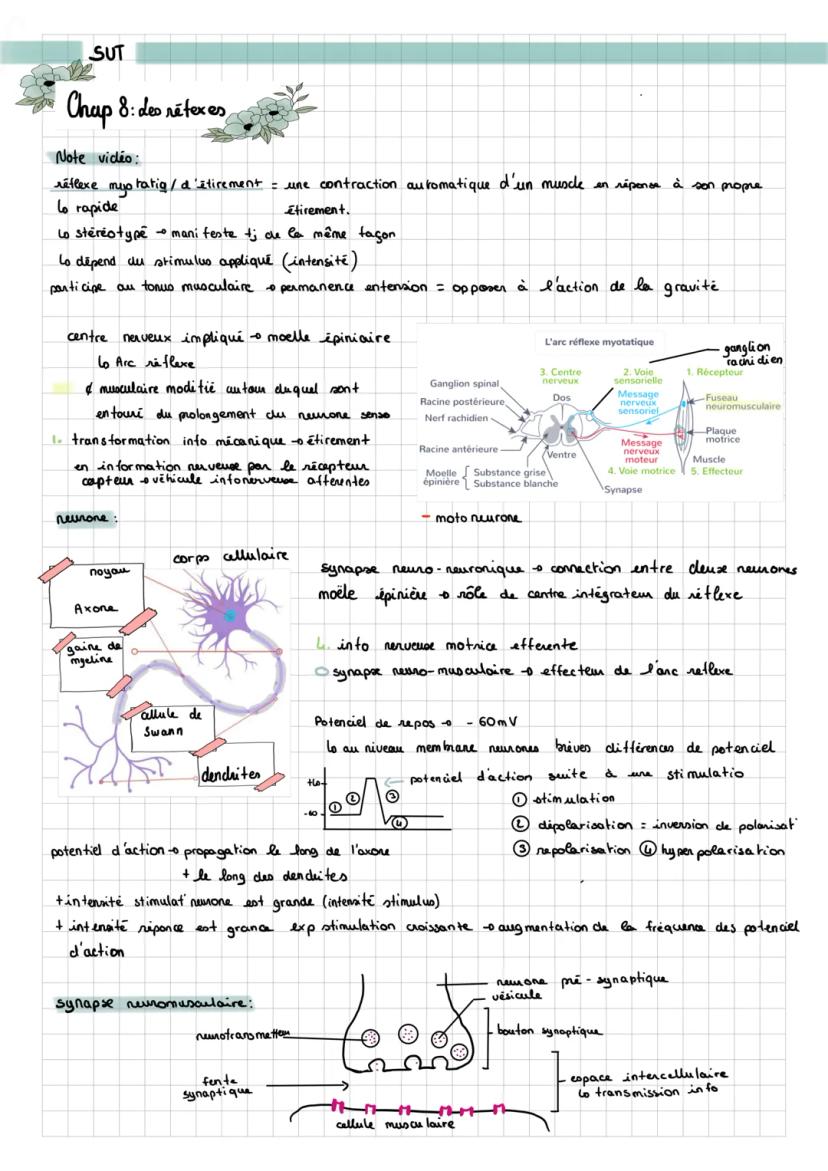 SVT
Chap 8: des réfexes
Note vidéo:
réflexe myotatiq / d'étirement = une contraction automatique d'un muscle en réponse à son propre
↳ rapide étirement.
↳ stéréotypé → manifeste tj de la même façon
↳ dépend du stimulus appliqué (intensité)
participe au tonus musculaire → permanence entension = opposer à l'action de la gravité
centre nerveux impliqué → moelle épiniaire
↳ Arc réflexe
¢ musculaire modifié autour duquel sont
entouré du prolongement du neurone senso
1. transformation info mécanique → étirement
en information nerveuse par le récepteur
capteur → véhicule infonerveuse afférentes
L'arc réflexe myotatique
ganglion
rachidien
3. Centre
nerveux
2. Voie
sensorielle
1. Récepteur
Ganglion spinal
Racine postérieure
Nerf rachidien
Racine antérieure
Dos
Ventre
Message
nerveux
sensoriel
Fuseau
neuromusculaire
Plaque
motrice
Message
nerveux
moteur
Muscle
4. Voie motrice
5. Effecteur
Moelle
épinière
Substance grise
Substance blanche
Synapse
- motoneurone
neurone:
noyau
Axone
corps cellulaire
gaine de
myeline
cellule de
Swann
dendrites
synapse neuro-neuronique → connection entre deux neurones
moële épinière → rôle de centre intégrateur du réflexe
4. info nerveuse motrice efferente
O synapse neuro-musculaire → effecteur de l'arc reflexe
Potenciel de repos → - 60mV
↳ au niveau membrane neurones brèves différences de potenciel
← potenciel d'action suite à une stimulatio
-60
① ② ③ ④
① stimulation
② dépolarisation = inversion de polarisat°
③ repolarisation ④ hyperpolarisation
potentiel d'action → propagation le long de l'axone
+ le long des dendrites
+ intensité stimulat° neurone est grande (intensité stimulus)
+ intensité réponce est grance exp stimulation croissante → augmentation de la fréquence des potenciel
d'action
synapse neuromusculaire:
neurone pré-synaptique
vésicule
neurotransmetteur
bouton synaptique
fente
synaptique
espace intercellulaire
↳ transmission info
cellule musculaire